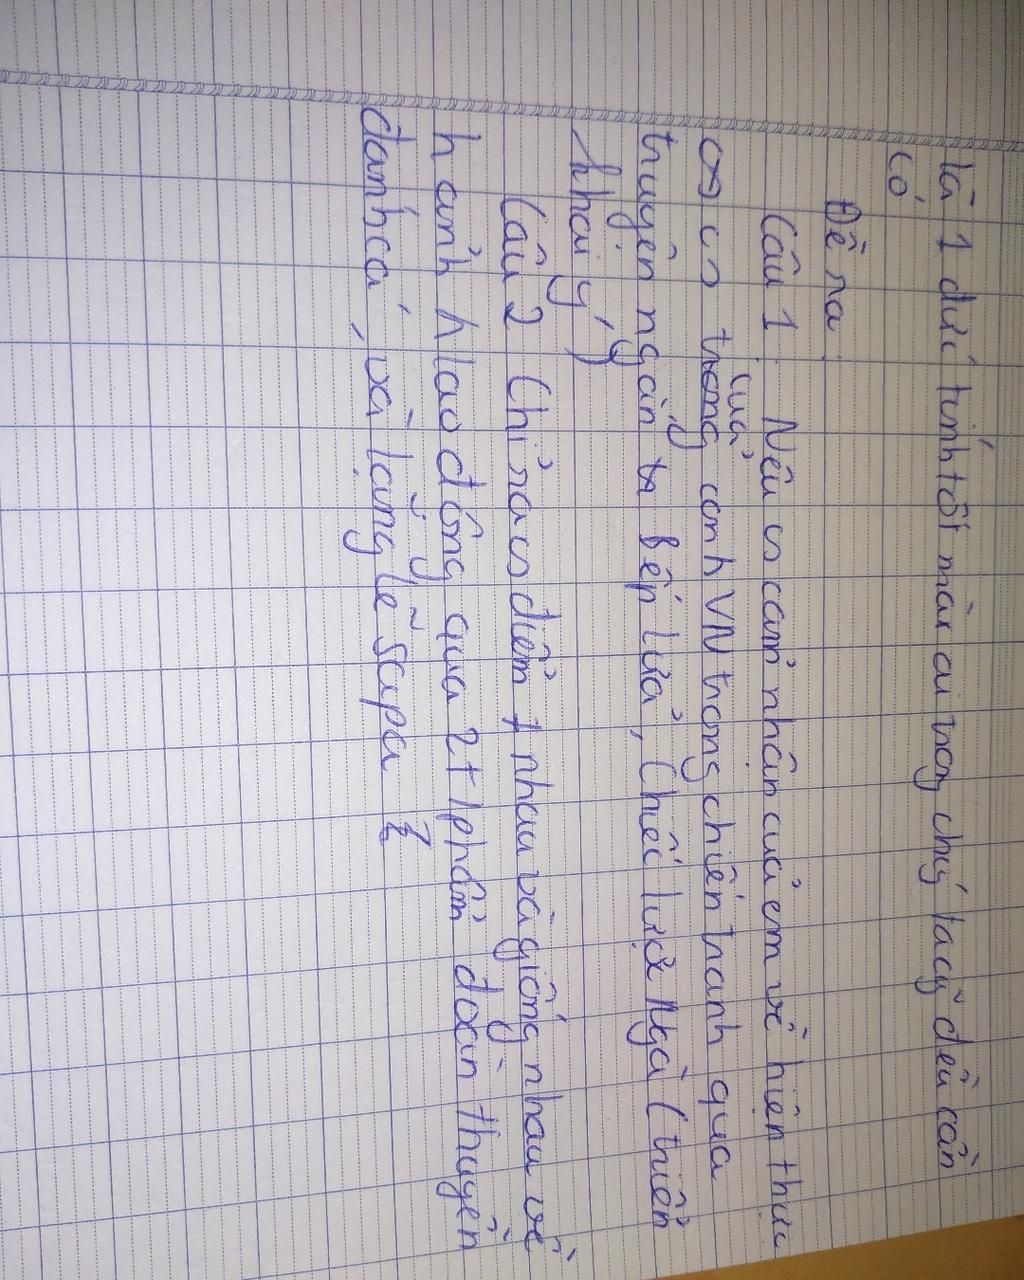 là 1 đức tính tốt mà ai trong chúng ta cũg đều cần
có
Đề ra
Câu 1 Nêu cảm nhận của em về hiện thực
của con VN trong chiến tranh qua
truyện ngắn Bếp lửa, Chiếc lược Ngà (thiên
khai ý)
Câu 2 Chỉ ra điểm ≠ nhau và giống nhau về
h ảnh h lao động qua 2 t phẩm đoàn thuyền
đanh cá, và lặng lẽ sapa